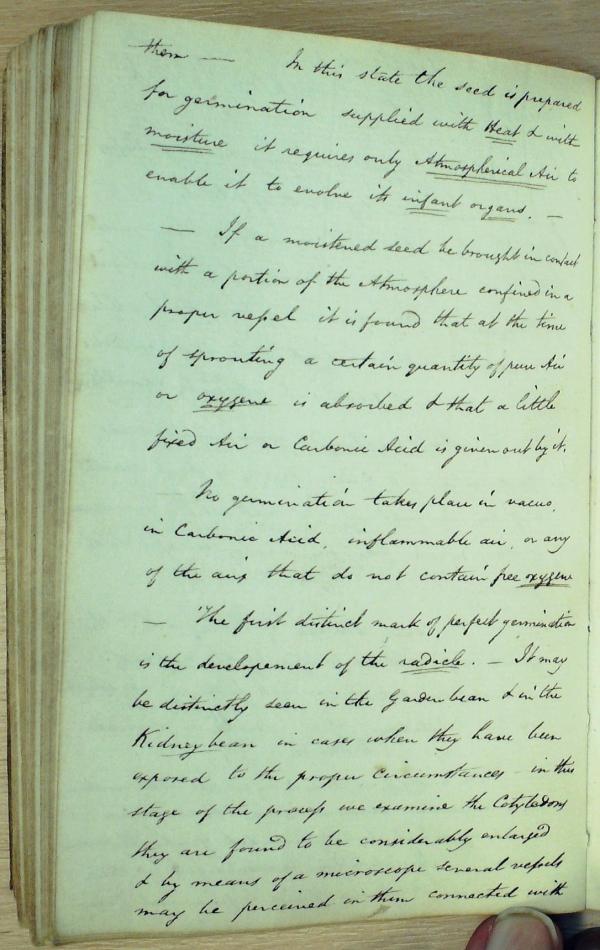 them — In this state the seed is prepared
for germination supplied with Heat & with
moisture it requires only Atmospherical Air to
enable it to evolve its infant organs. —
— If a moistened seed be brought in contact
with a portion of the Atmosphere confined in a
proper vessel it is found that at the time
of sprouting a certain quantity of pure Air
or oxygene is absorbed & that a little
fixed Air or Carbonic Acid is given out by it.
No germination takes place in vacuo,
in Carbonic Acid, inflammable air, or any
of the airs that do not contain free oxygene
— The first distinct mark of perfect germination
is the developement of the radicle. — It may
be distinctly seen in the Garden bean & in the
Kidney bean in cases when they have been
exposed to the proper circumstances – in this
stage of the process we examine the Cotyledons
they are found to be considerably enlarged
& by means of a microscope several vessels
may be perceived in them connected with